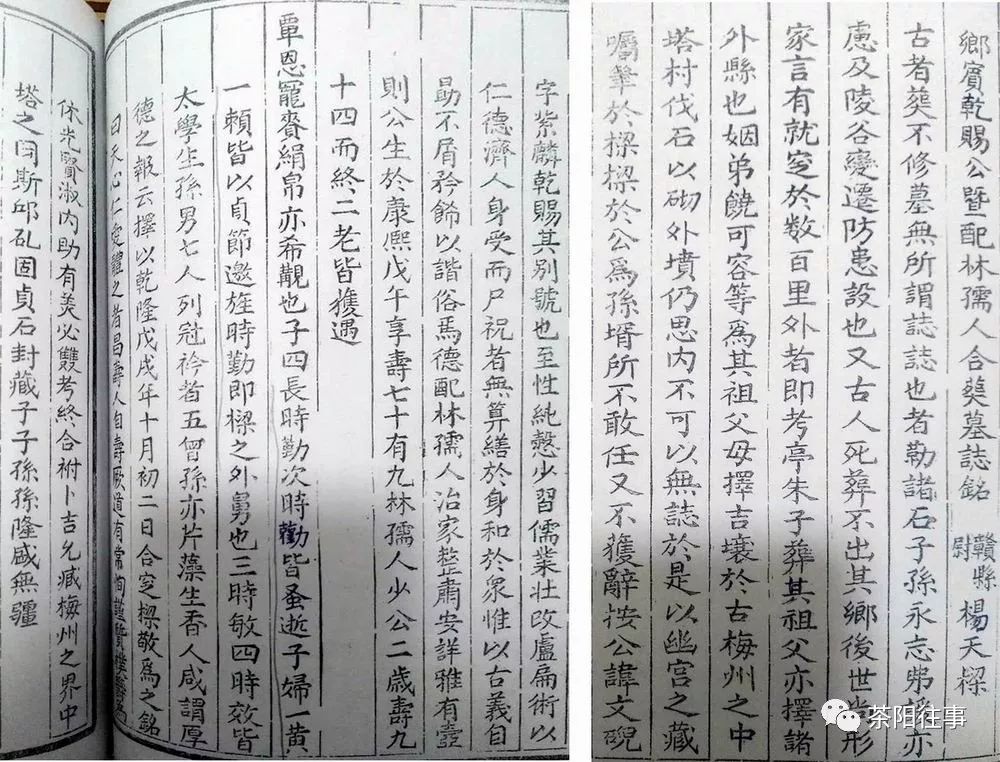 鄉賓乾賜公暨配林孺人合葬墓誌銘 贛縣尉 楊天樑
古者葬不修墓無所謂誌誌也者勒諸石子孫永忘弗亦
慮及陵谷變遷防患設也又古人死葬不出其鄉後世尚形
家言有就窆於數百里外者即考亭朱子葬其祖父亦擇諸
外縣也姻弟饒可容等為其祖父母擇吉壤於古梅州之中
塔村伐石以砌外墳仍思內不可以無誌於是以幽宮之藏
囑筆於樑樑於公為孫壻所不敢任又不獲辭按公諱文硯
字紫麟乾賜其別號也至性純慤少習儒業壯改盧扁術以
仁德濟人身受而尸祝者無算繕於身和於眾惟以古義自
勗不屑矜餙以諧俗焉德配林孺人治家整肅安詳雅有壼
則公生於康熈戊午享壽七十有九林孺人少公二歲壽九
十四而終二老皆獲遇
覃恩寵賚絹帛亦希覯也子四長時勤次時勸皆蚤逝子婦一黄
一賴皆以貞節邀旌時勤即樑之外舅也三時敏四時效皆
太學生孫男七人列冠衿者五曾孫亦片藻生香人咸謂厚
德之報云擇以乾隆戊戌年十月初二日合窆樑敬為之銘
曰天心仁愛體之者昌壽人自壽厥道有常恂謹質樸
休光賢淑內助有美必雙考終合祔卜吉允臧梅州之界中
塔之岡斯邱虬固貞石封藏子子孫孫隆盛無疆
茶阳往事